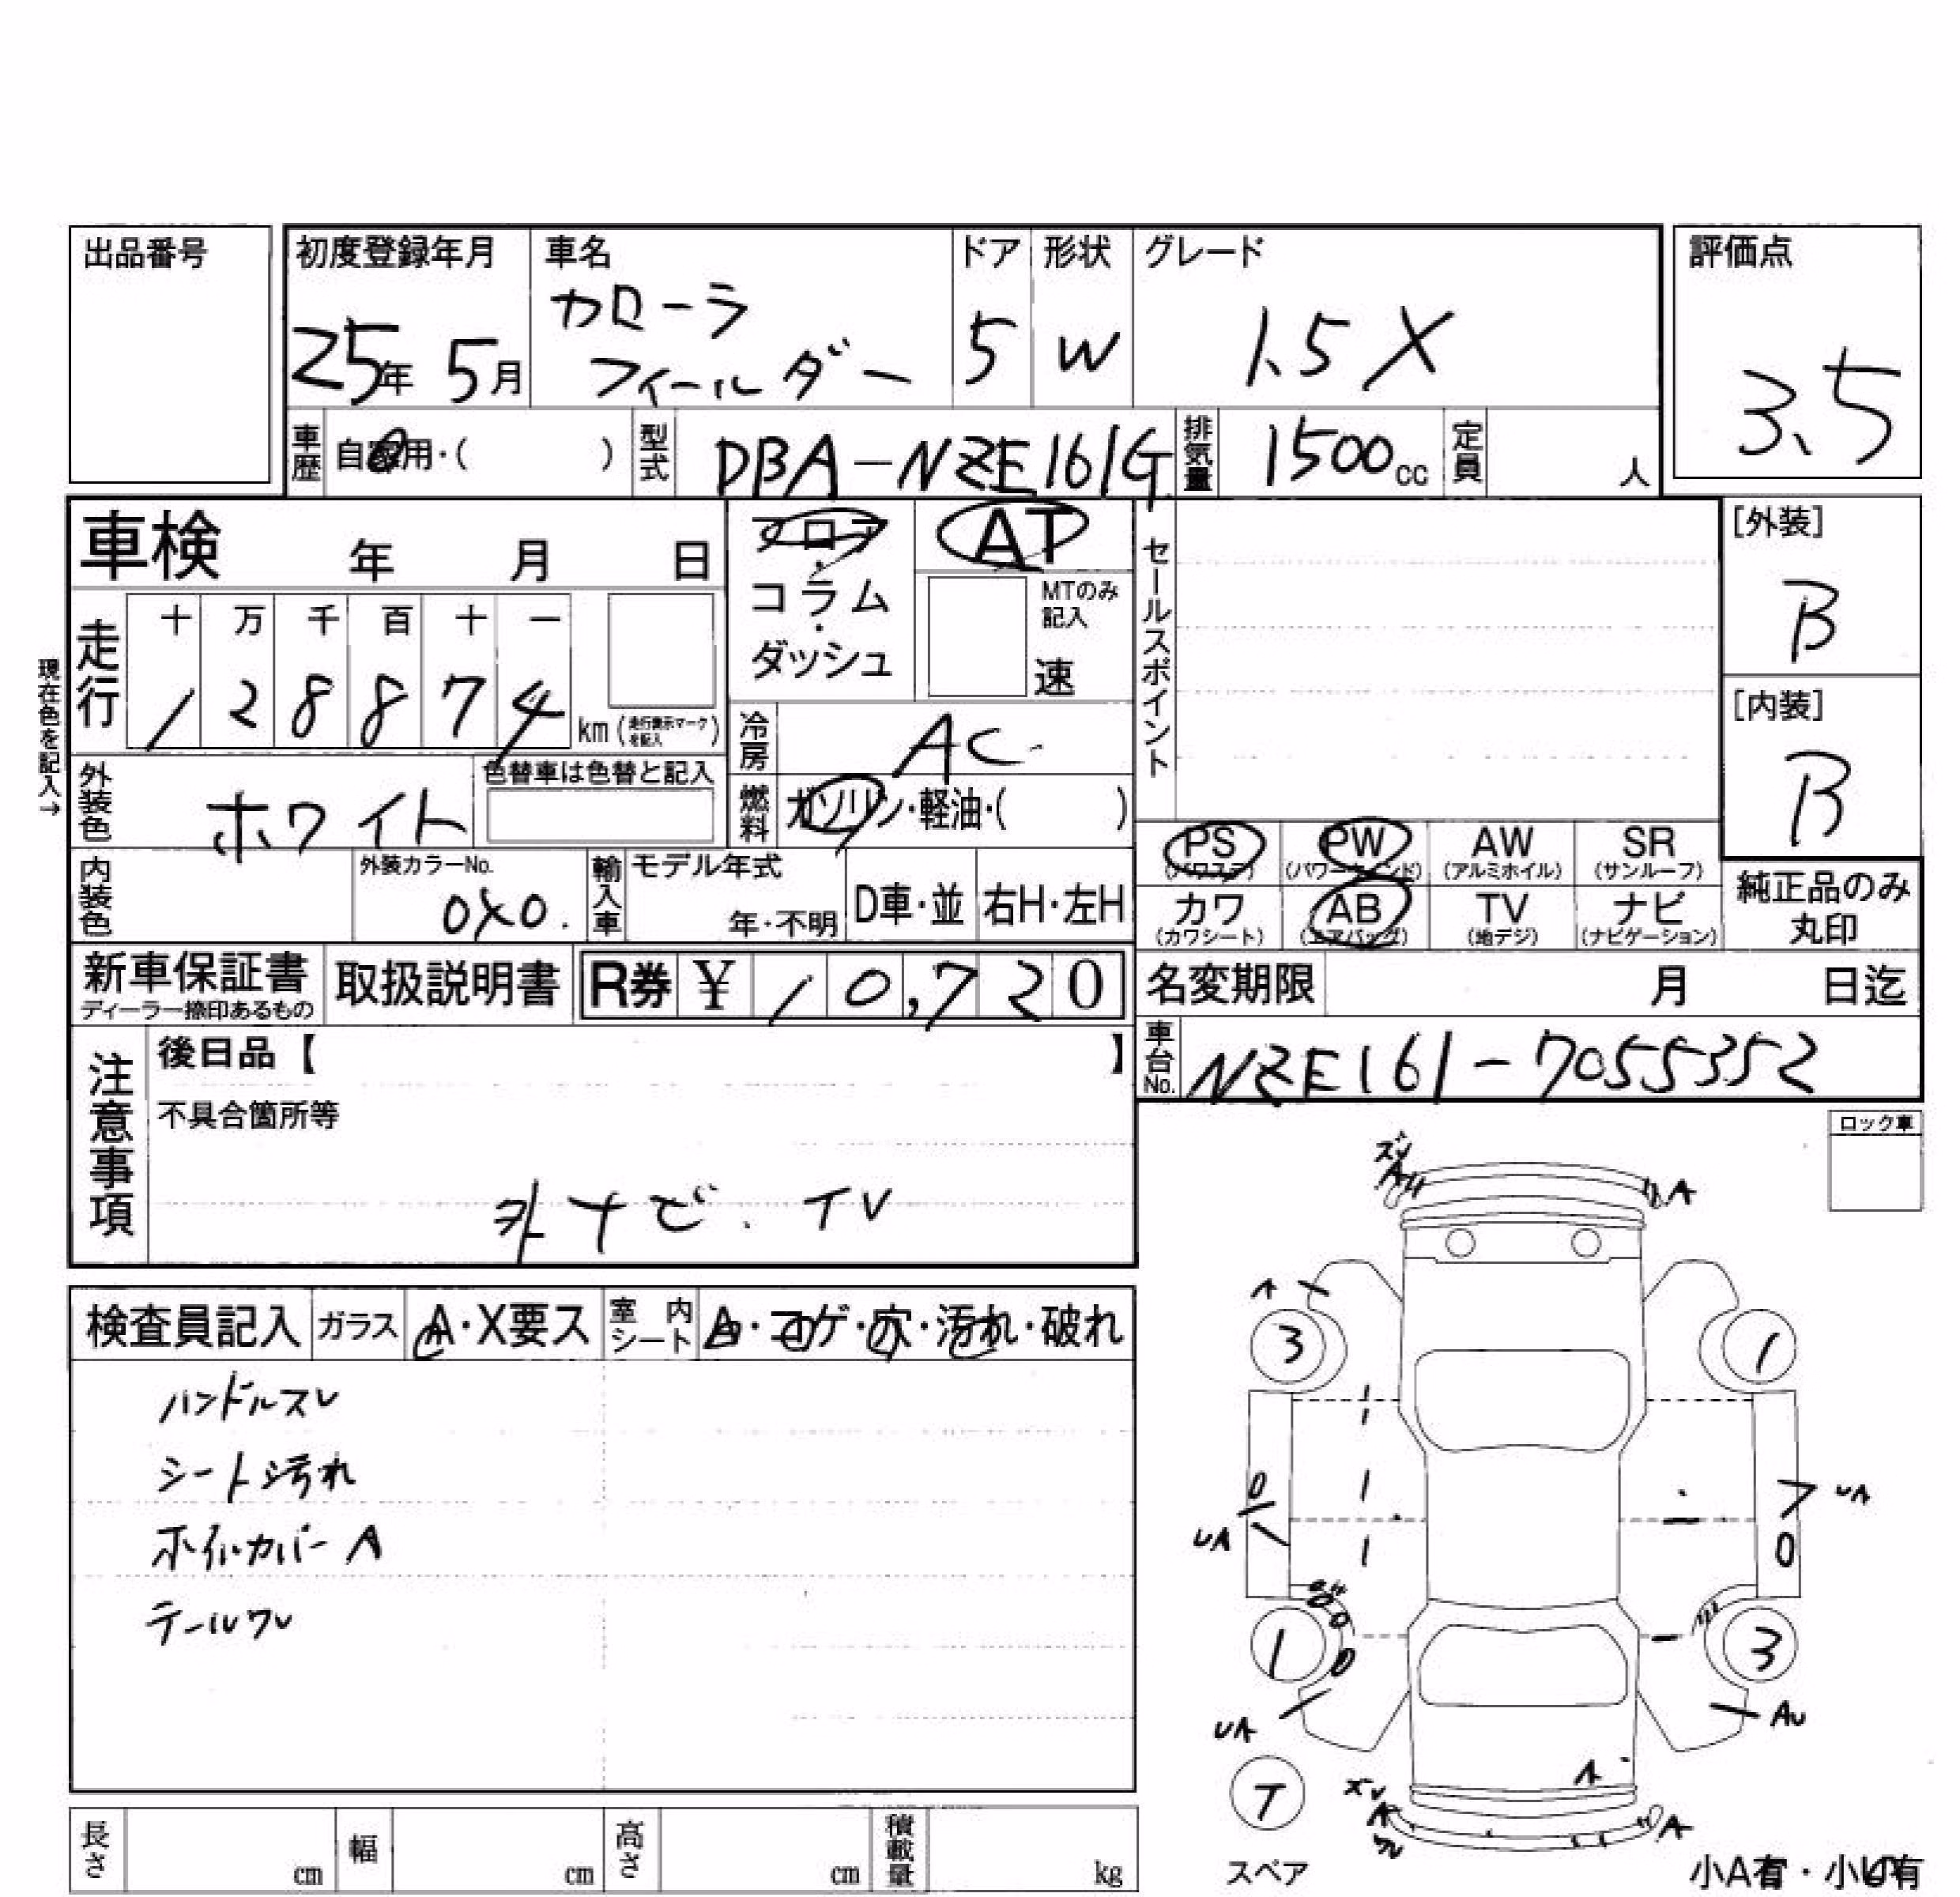 出品番号
初度登録年月
25年 5月
車名
カローラ
フィールダー
ドア
5
形状
W
グレード
1.5X
評価点
3.5
車歴
自家用・( )
型式
DBA-NZE161G
排気量
1500cc
定員
人
車検 年 月 日
フロア
・
コラム
・
ダッシュ
AT
MTのみ
記入
速
セールスポイント
[外装]
B
[内装]
B
現在色を記入→
走行
十 万 千 百 十 一
1 2 8 8 7 4
km (走行表示マークを記入)
冷房
AC
外装色
ホワイト
色替車は色替と記入
燃料
ガソリン・軽油・( )
PS
(パワステ)
PW
(パワーウィンド)
AW
(アルミホイル)
SR
(サンルーフ)
カワ
(カワシート)
AB
(エアバッグ)
TV
(地デジ)
ナビ
(ナビゲーション)
純正品のみ
丸印
内装色
外装カラーNo.
040.
輸入車
モデル年式
年・不明
D車・並
右H・左H
新車保証書
ディーラー捺印あるもの
取扱説明書
R券 ¥ 10,720
名変期限 月 日迄
車台No.
NZE161-7055352
注意事項
後日品【 】
不具合箇所等
外ナビ. TV
ロック車
検査員記入
ガラス
A・X要ス
室内
シート
A・コゲ・穴・汚れ・破れ
ハンドルスレ
シート汚れ
ホイルカバーA
テールワレ
A
A
3
1
UA
UA
1
3
UA
AU
T
スペア
A
A
小A有・小U有
長さ cm
幅 cm
高さ cm
積載量 kg